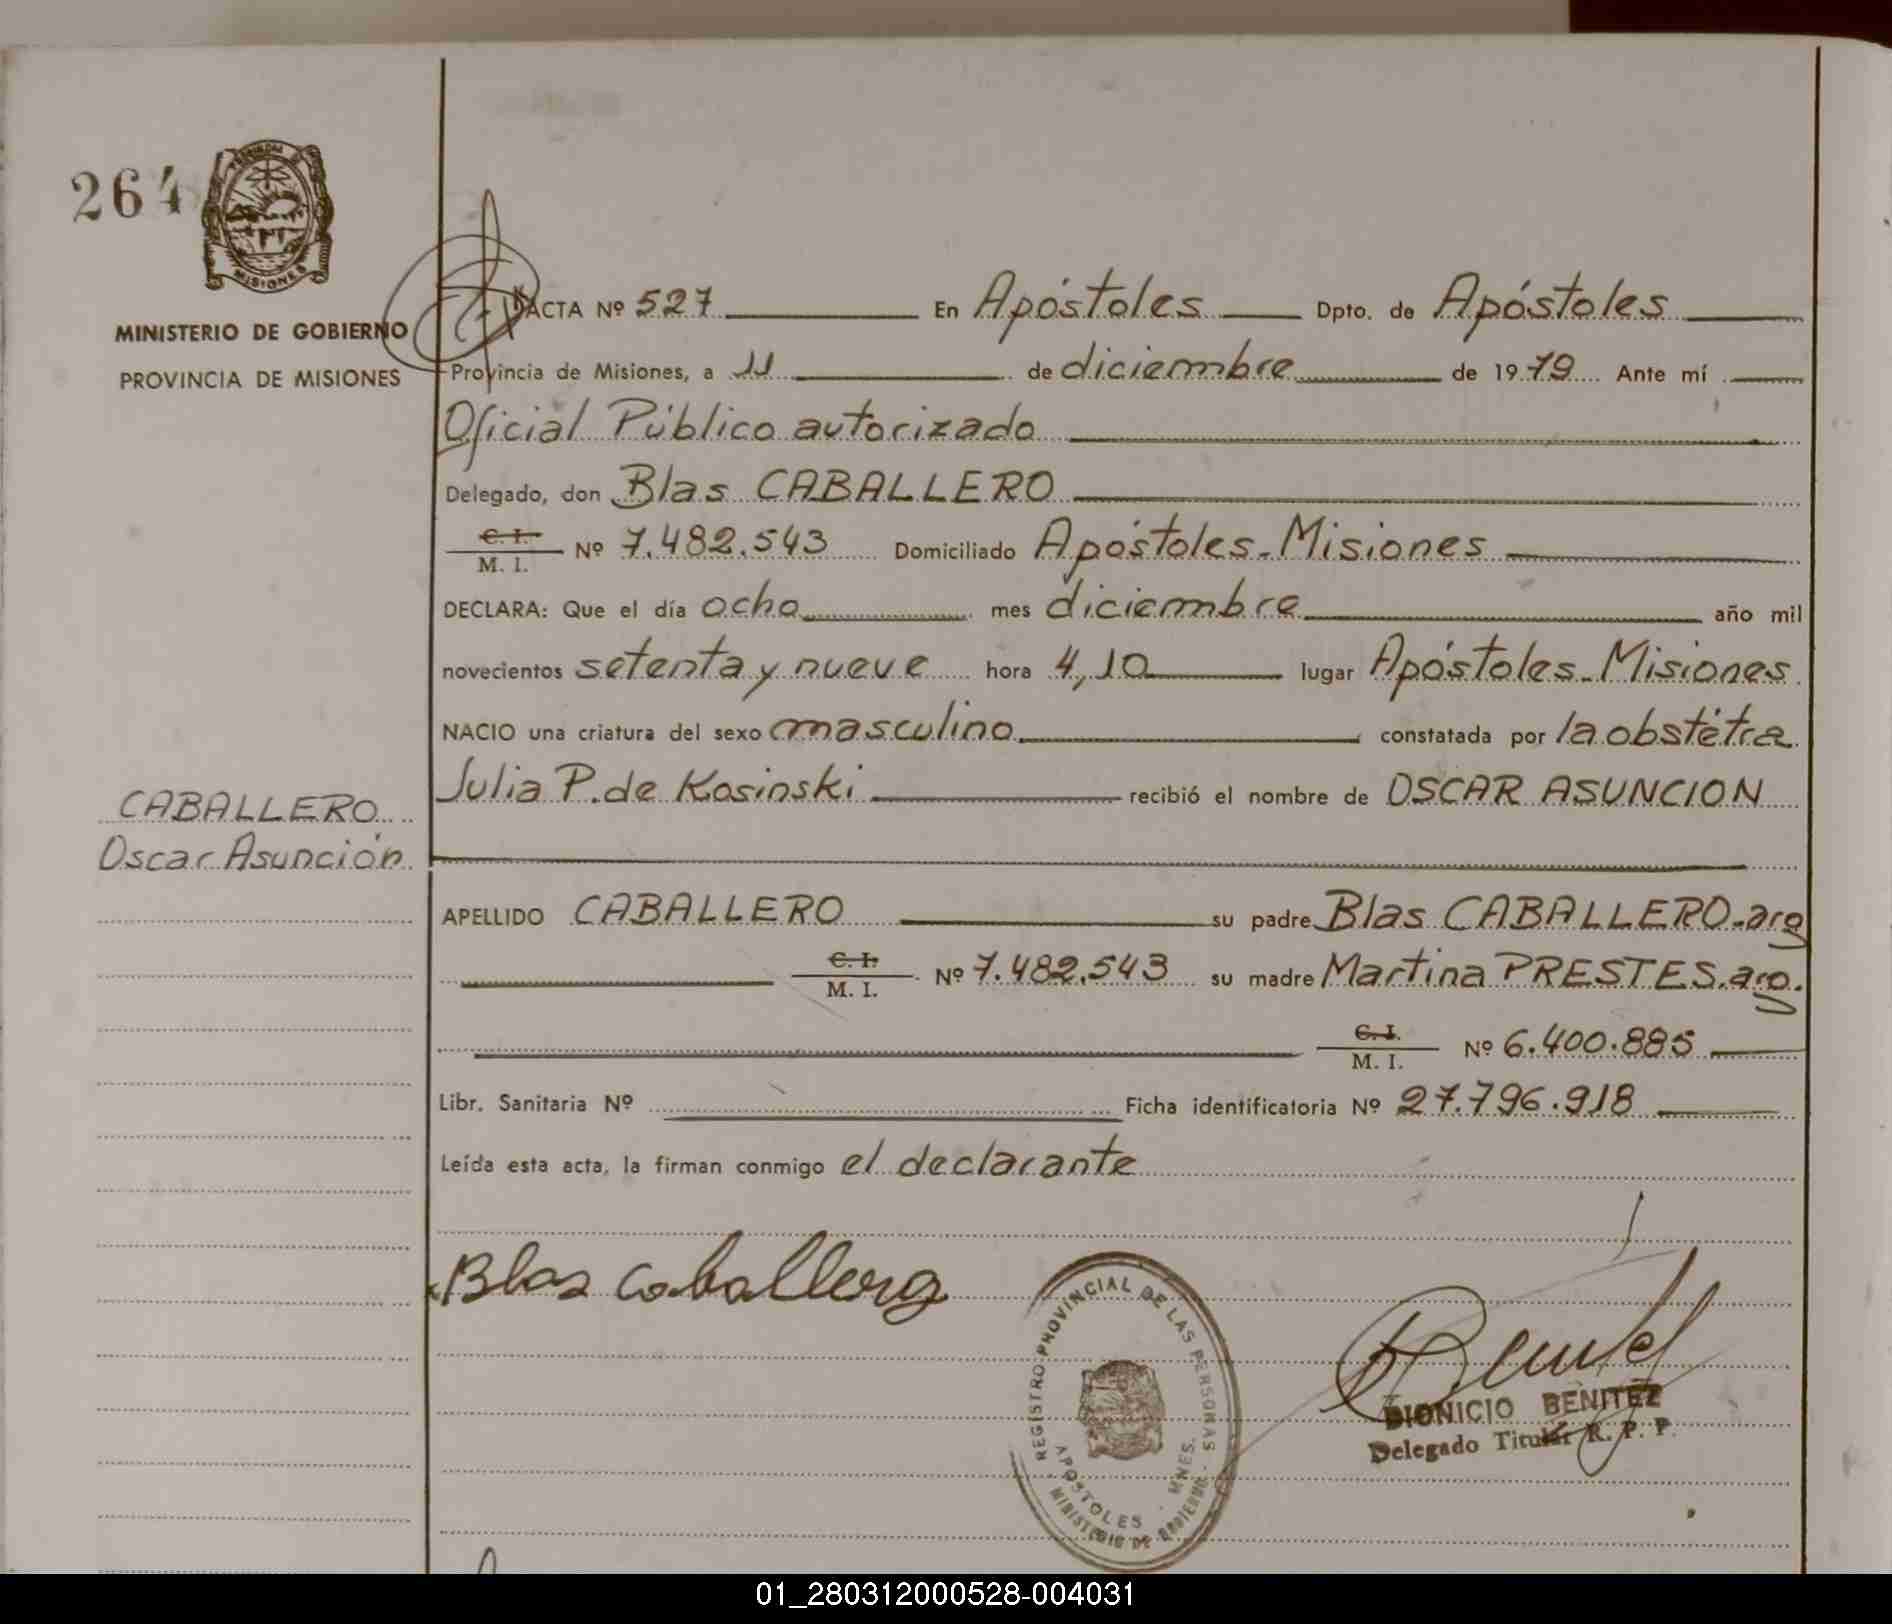 264
MISIONES
MINISTERIO DE GOBIERNO
PROVINCIA DE MISIONES
ACTA Nº 527 En Apóstoles Dpto. de Apóstoles
Provincia de Misiones, a 11 de diciembre de 1979 Ante mí
Oficial Público autorizado
Delegado, don Blas CABALLERO
C. I.
M. I. Nº 7.482.543 Domiciliado Apóstoles-Misiones
DECLARA: Que el día ocho mes diciembre año mil
novecientos setenta y nueve hora 4,10 lugar Apóstoles-Misiones
NACIO una criatura del sexo masculino constatada por la obstétra
Julia P. de Kosinski recibió el nombre de OSCAR ASUNCION
CABALLERO
Oscar Asunción
APELLIDO CABALLERO su padre Blas CABALLERO-arg
C. I.
M. I. Nº 7.482.543 su madre Martina PRESTES.arg.
C. I.
M. I. Nº 6.400.885
Libr. Sanitaria Nº Ficha identificatoria Nº 27.796.918
Leída esta acta, la firman conmigo el declarante
Blas Caballero
REGISTRO PROVINCIAL DE LAS PERSONAS
APOSTOLES - MNES.
MINISTERIO DE GOBIERNO
DIONICIO BENITEZ
Delegado Titular R. P. P.
01_280312000528-004031